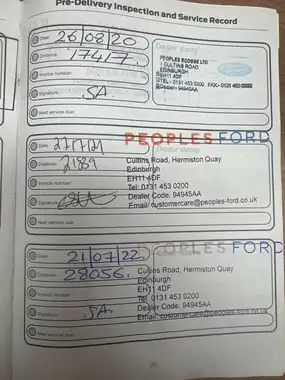 Pre-Delivery Inspection and Service Record
Date: 26/08/20
Distance: 17417.
Invoice number:
Signature: SA
Next service due:
Dealer stamp
PEOPLES ECOSSE LTD
1 CULTINS ROAD
EDINBURGH
EH11 4DF
TEL:- 0131 453 0200 FAX:- 0131 453
Dealer:- 94945AA
Date: 27/7/21
Distance: 21889
Invoice number:
Signature:
Next service due:
PEOPLES FORD
Cultins Road, Hermiston Quay
Edinburgh
EH11 4DF
Tel: 0131 453 0200
Dealer Code: 94945AA
Email: customercare@peoples-ford.co.uk
Date: 21/07/22.
Distance: 28056.
Invoice number:
Signature: SA.
Next service due:
PEOPLES FORD
Cultins Road, Hermiston Quay
Edinburgh
EH11 4DF
Tel: 0131 453 0200
Dealer Code: 94945AA
Email: customercare@peoples-ford.co.uk